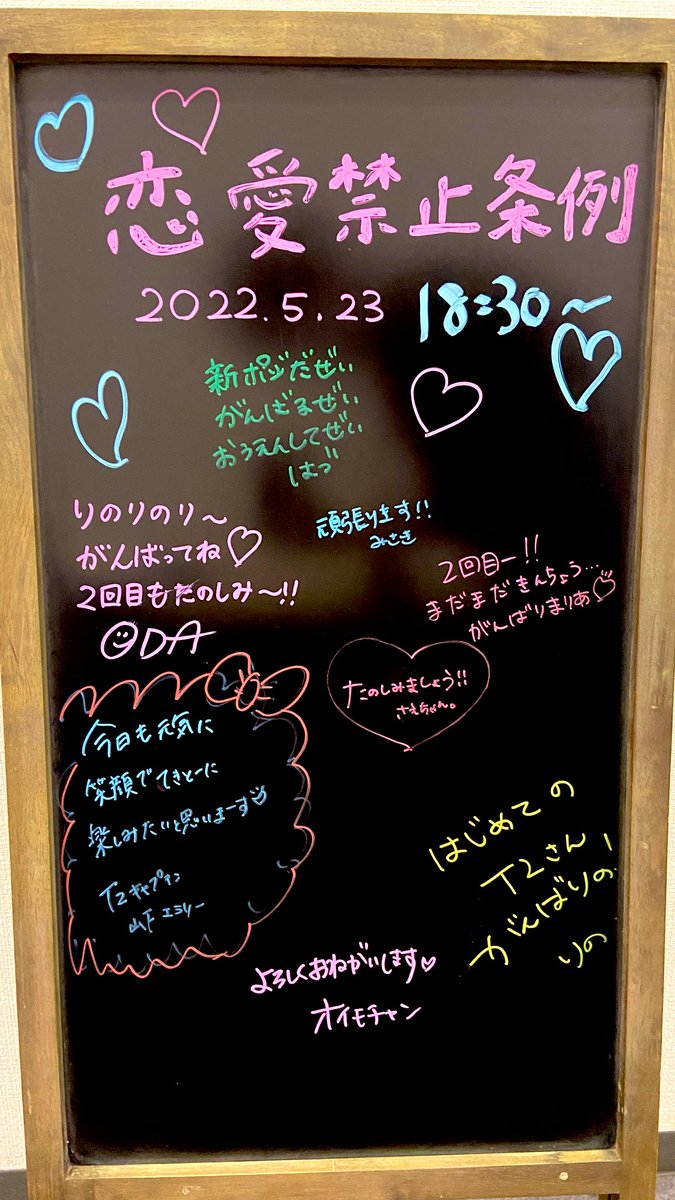 恋愛禁止条例
2022.5.23 18:30~
新ポジだぜぃ
がんばまぜぃ
おうえんしてぜぃ
はづ
りのりのり〜
がんばってね♡
2回目もたのしみ〜!!
ODA
頑張ります!!
みさき
2回目ー!!
まだまだきんちょう…
がんばりまりあ♡
たのしみましょう!!
さえちゃん。
今日も元気に
笑顔でてきとーに
楽しみたいと思いまーす
T2キャプテン
山下エミリー
はじめての
T2さん!
がんばりの
りの
よろしくおねがいします♡
オイモチャン